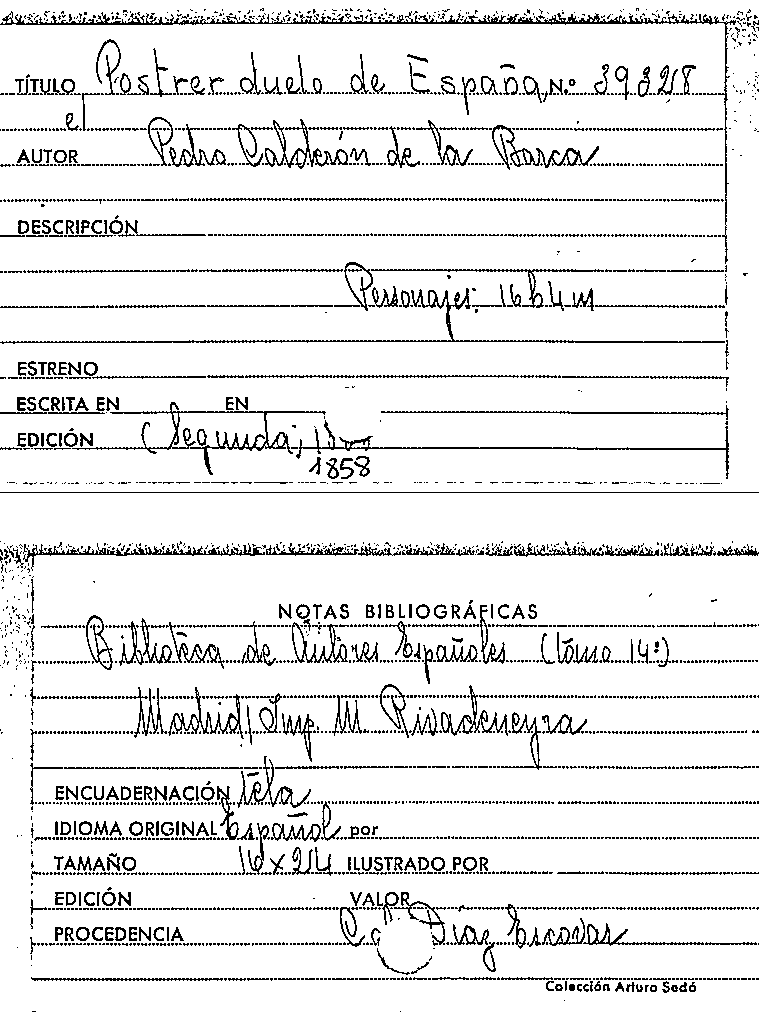 TÍTULO Postrer duelo de España, N.º 39328
el
AUTOR Pedro Calderón de la Barca
DESCRIPCIÓN
Personajes: 16 h 4 m
ESTRENO
ESCRITA EN EN
EDICIÓN (Segunda;
1858
NOTAS BIBLIOGRÁFICAS
Biblioteca de Autores Españoles (tomo 14º)
Madrid/ Imp. M Rivadeneyra
ENCUADERNACIÓN tela
IDIOMA ORIGINAL Español por
TAMAÑO 16 x 24 ILUSTRADO POR
EDICIÓN VALOR
PROCEDENCIA Díaz Escovar
Colección Arturo Sedó